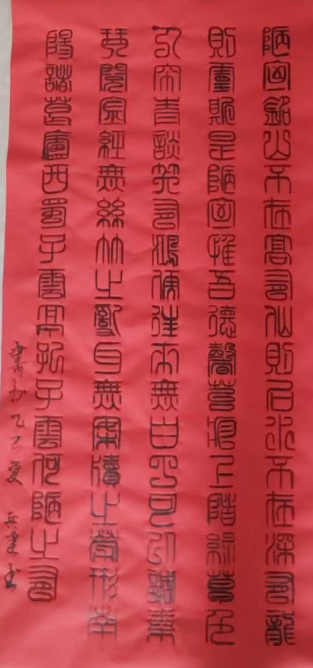 陋室銘山不在高有仙則名水不在深有龍
則靈斯是陋室惟吾德馨苔痕上階綠草色
入簾青談笑有鴻儒往來無白丁可以調素
琴閱金經無絲竹之亂耳無案牘之勞形南
陽諸葛廬西蜀子雲亭孔子雲何陋之有
書於乙巳夏